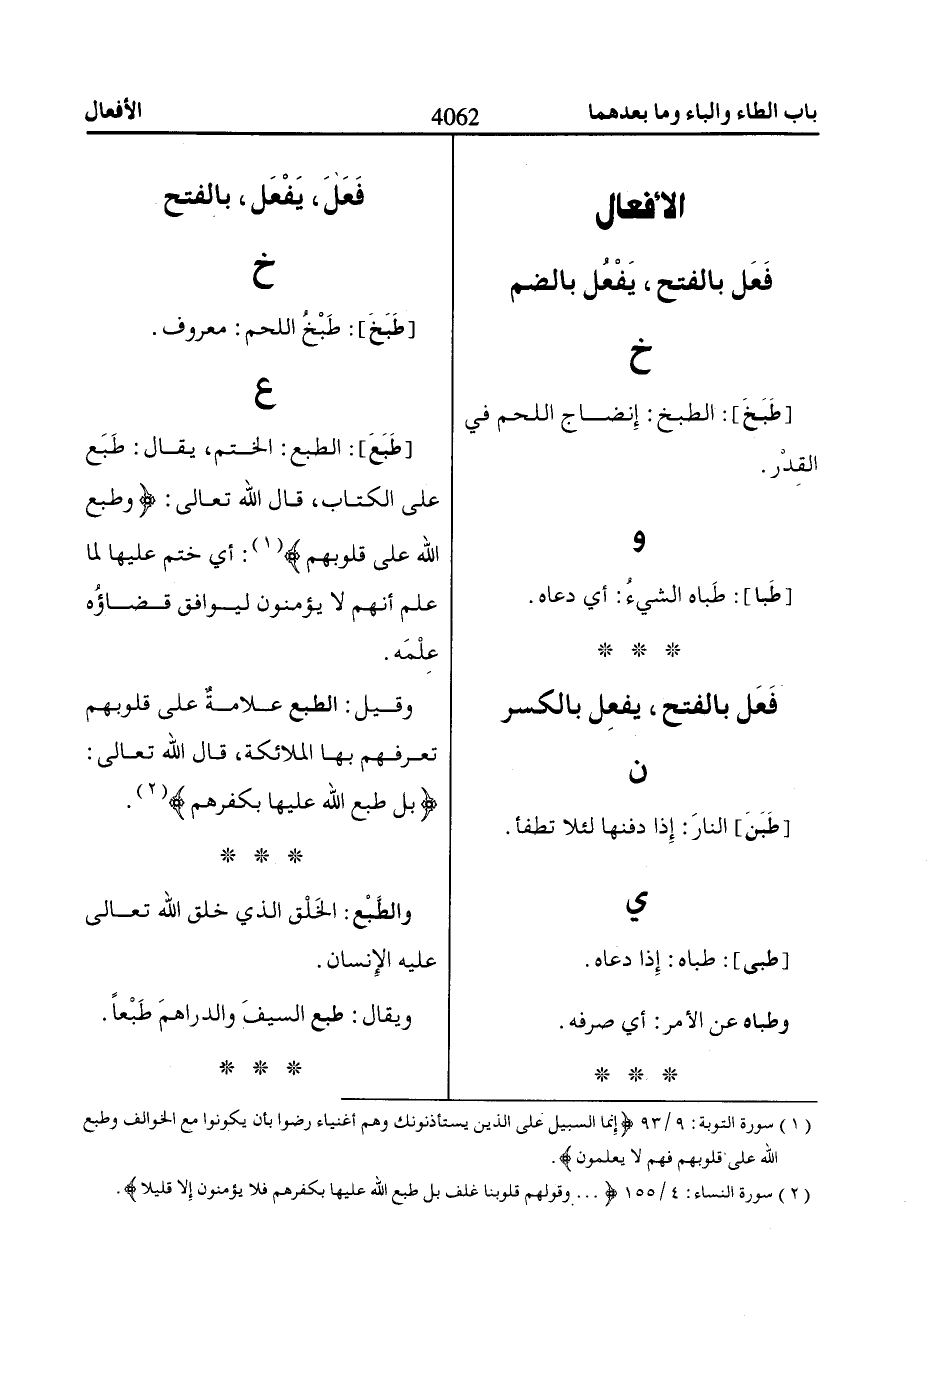 باب الطاء والباء وما بعدهما
4062
الأفعال
الأفعال
فَعَل بالفتح، يَفْعُل بالضم
خ
[طَبَخَ]: الطبخ: إنضاج اللحم في
القِدْر.
و
[طَبا]: طَباه الشيءُ: أي دعاه.
* * *
فَعَل بالفتح، يفعِل بالكسر
ن
[طَبَنَ] النارَ: إذا دفنها لئلا تطفأ.
ي
[طبى]: طباه: إذا دعاه.
وطباه عن الأمر: أي صرفه.
* * *
فَعَلَ، يَفْعَل، بالفتح
خ
[طَبَخَ]: طَبْخُ اللحم: معروف.
ع
[طَبَعَ]: الطبع: الختم، يقال: طَبَع
على الكتاب، قال الله تعالى: ﴿وطبع
الله على قلوبهم﴾(١): أي ختم عليها لما
علم أنهم لا يؤمنون ليوافق قضاؤُه
عِلْمَه.
وقيل: الطبع علامةٌ على قلوبهم
تعرفهم بها الملائكة، قال الله تعالى:
﴿بل طبع الله عليها بكفرهم﴾(٢).
* * *
والطَّبْع: الخَلْق الذي خلق الله تعالى
عليه الإنسان.
ويقال: طبع السيفَ والدراهمَ طَبْعاً.
* * *
(١) سورة التوبة: ٩/٩٣ ﴿إنما السبيل على الذين يستأذنونك وهم أغنياء رضوا بأن يكونوا مع الخوالف وطبع
الله على قلوبهم فهم لا يعلمون﴾.
(٢) سورة النساء: ٤/١٥٥ ﴿... وقولهم قلوبنا غلف بل طبع الله عليها بكفرهم فلا يؤمنون إلا قليلا﴾.